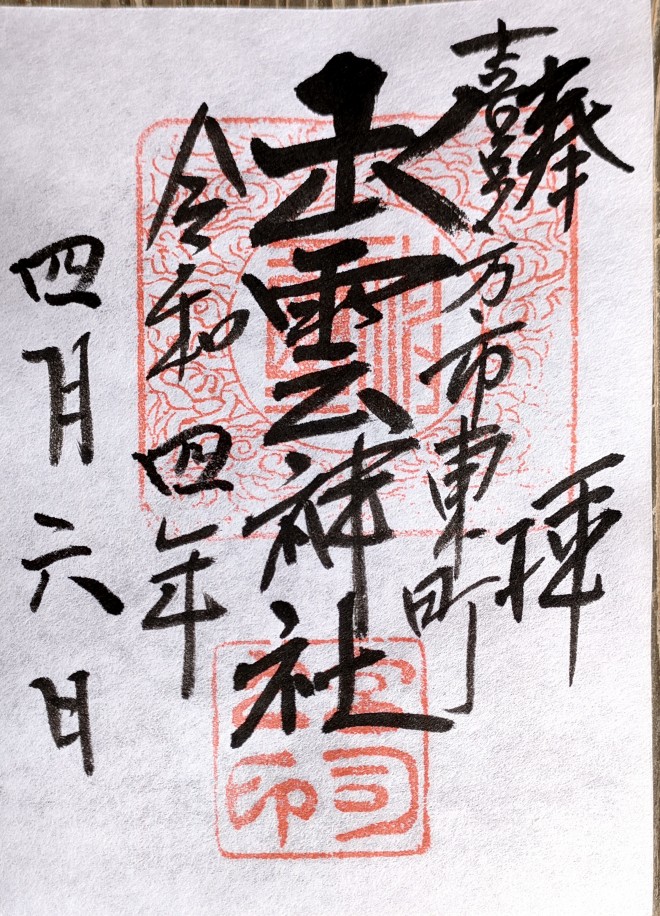 奉拝
喜多方市東町
出雲神社
令和四年
四月六日
宮司
之印